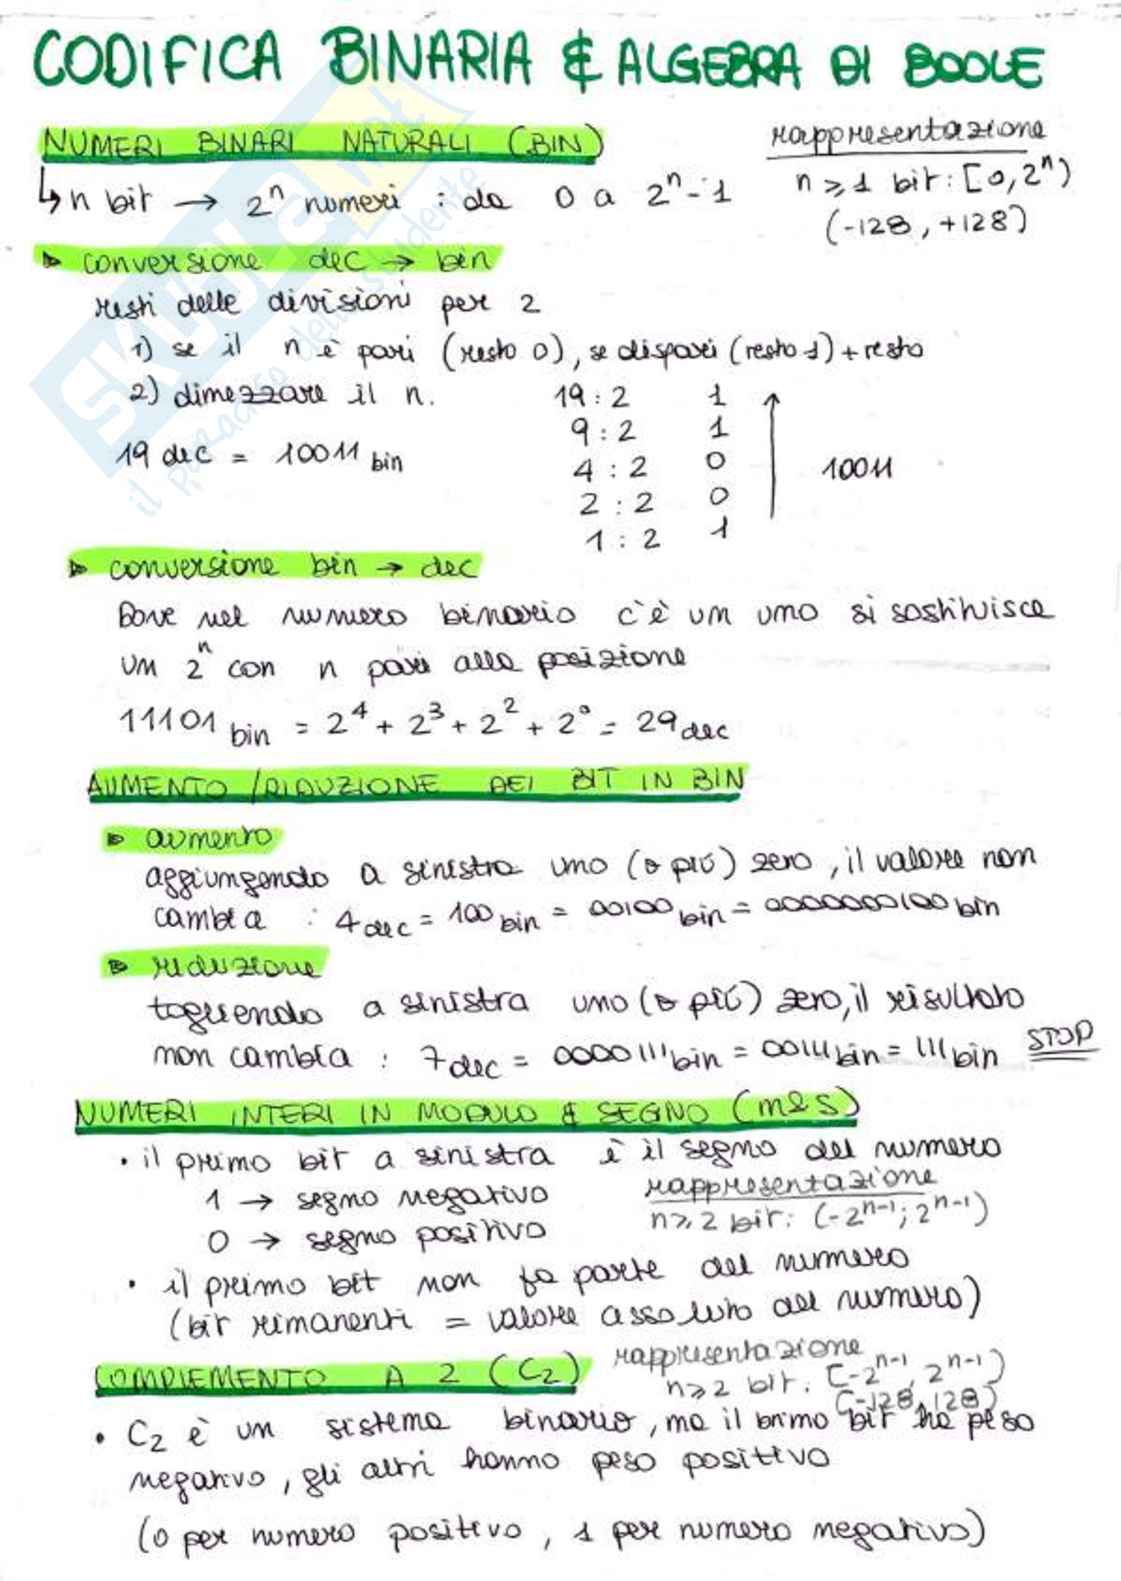 CODIFICA BINARIA & ALGEBRA DI BOOLE
NUMERI BINARI NATURALI (BIN)
rappresentazione
n ⩾ 1 bit : [0, 2ⁿ)
(-128, +128)
↳ n bit → 2ⁿ numeri : da 0 a 2ⁿ-1
▸ conversione dec → bin
resti delle divisioni per 2
1) se il n è pari (resto 0), se dispari (resto 1) + resto
2) dimezzare il n.
19 dec = 10011 bin
19 : 2 1
9 : 2 1
4 : 2 0
2 : 2 0
1 : 2 1
↑ 10011
▸ conversione bin → dec
Dove nel numero binario c'è un uno si sostituisce
un 2ⁿ con n pari alla posizione
11101 bin = 2⁴ + 2³ + 2² + 2⁰ = 29 dec
AUMENTO / RIDUZIONE DEI BIT IN BIN
▸ aumento
aggiungendo a sinistra uno (o più) zero, il valore non
cambia : 4 dec = 100 bin = 00100 bin = 0000000100 bin
▸ riduzione
togliendo a sinistra uno (o più) zero, il risultato
non cambia : 7 dec = 0000111 bin = 00111 bin = 111 bin STOP
NUMERI INTERI IN MODULO & SEGNO (M&S)
• il primo bit a sinistra è il segno del numero
1 → segno negativo
0 → segno positivo
rappresentazione
n ⩾ 2 bit : (-2ⁿ⁻¹ ; 2ⁿ⁻¹)
• il primo bit non fa parte del numero
(bit rimanenti = valore assoluto del numero)
COMPLEMENTO A 2 (C2)
rappresentazione
n ⩾ 2 bit : [-2ⁿ⁻¹, 2ⁿ⁻¹)
[-128, 128)
• C2 è un sistema binario, ma il primo bit ha peso
negativo, gli altri hanno peso positivo
(0 per numero positivo, 1 per numero negativo)
SKUOLA.net
il paradiso dello studente